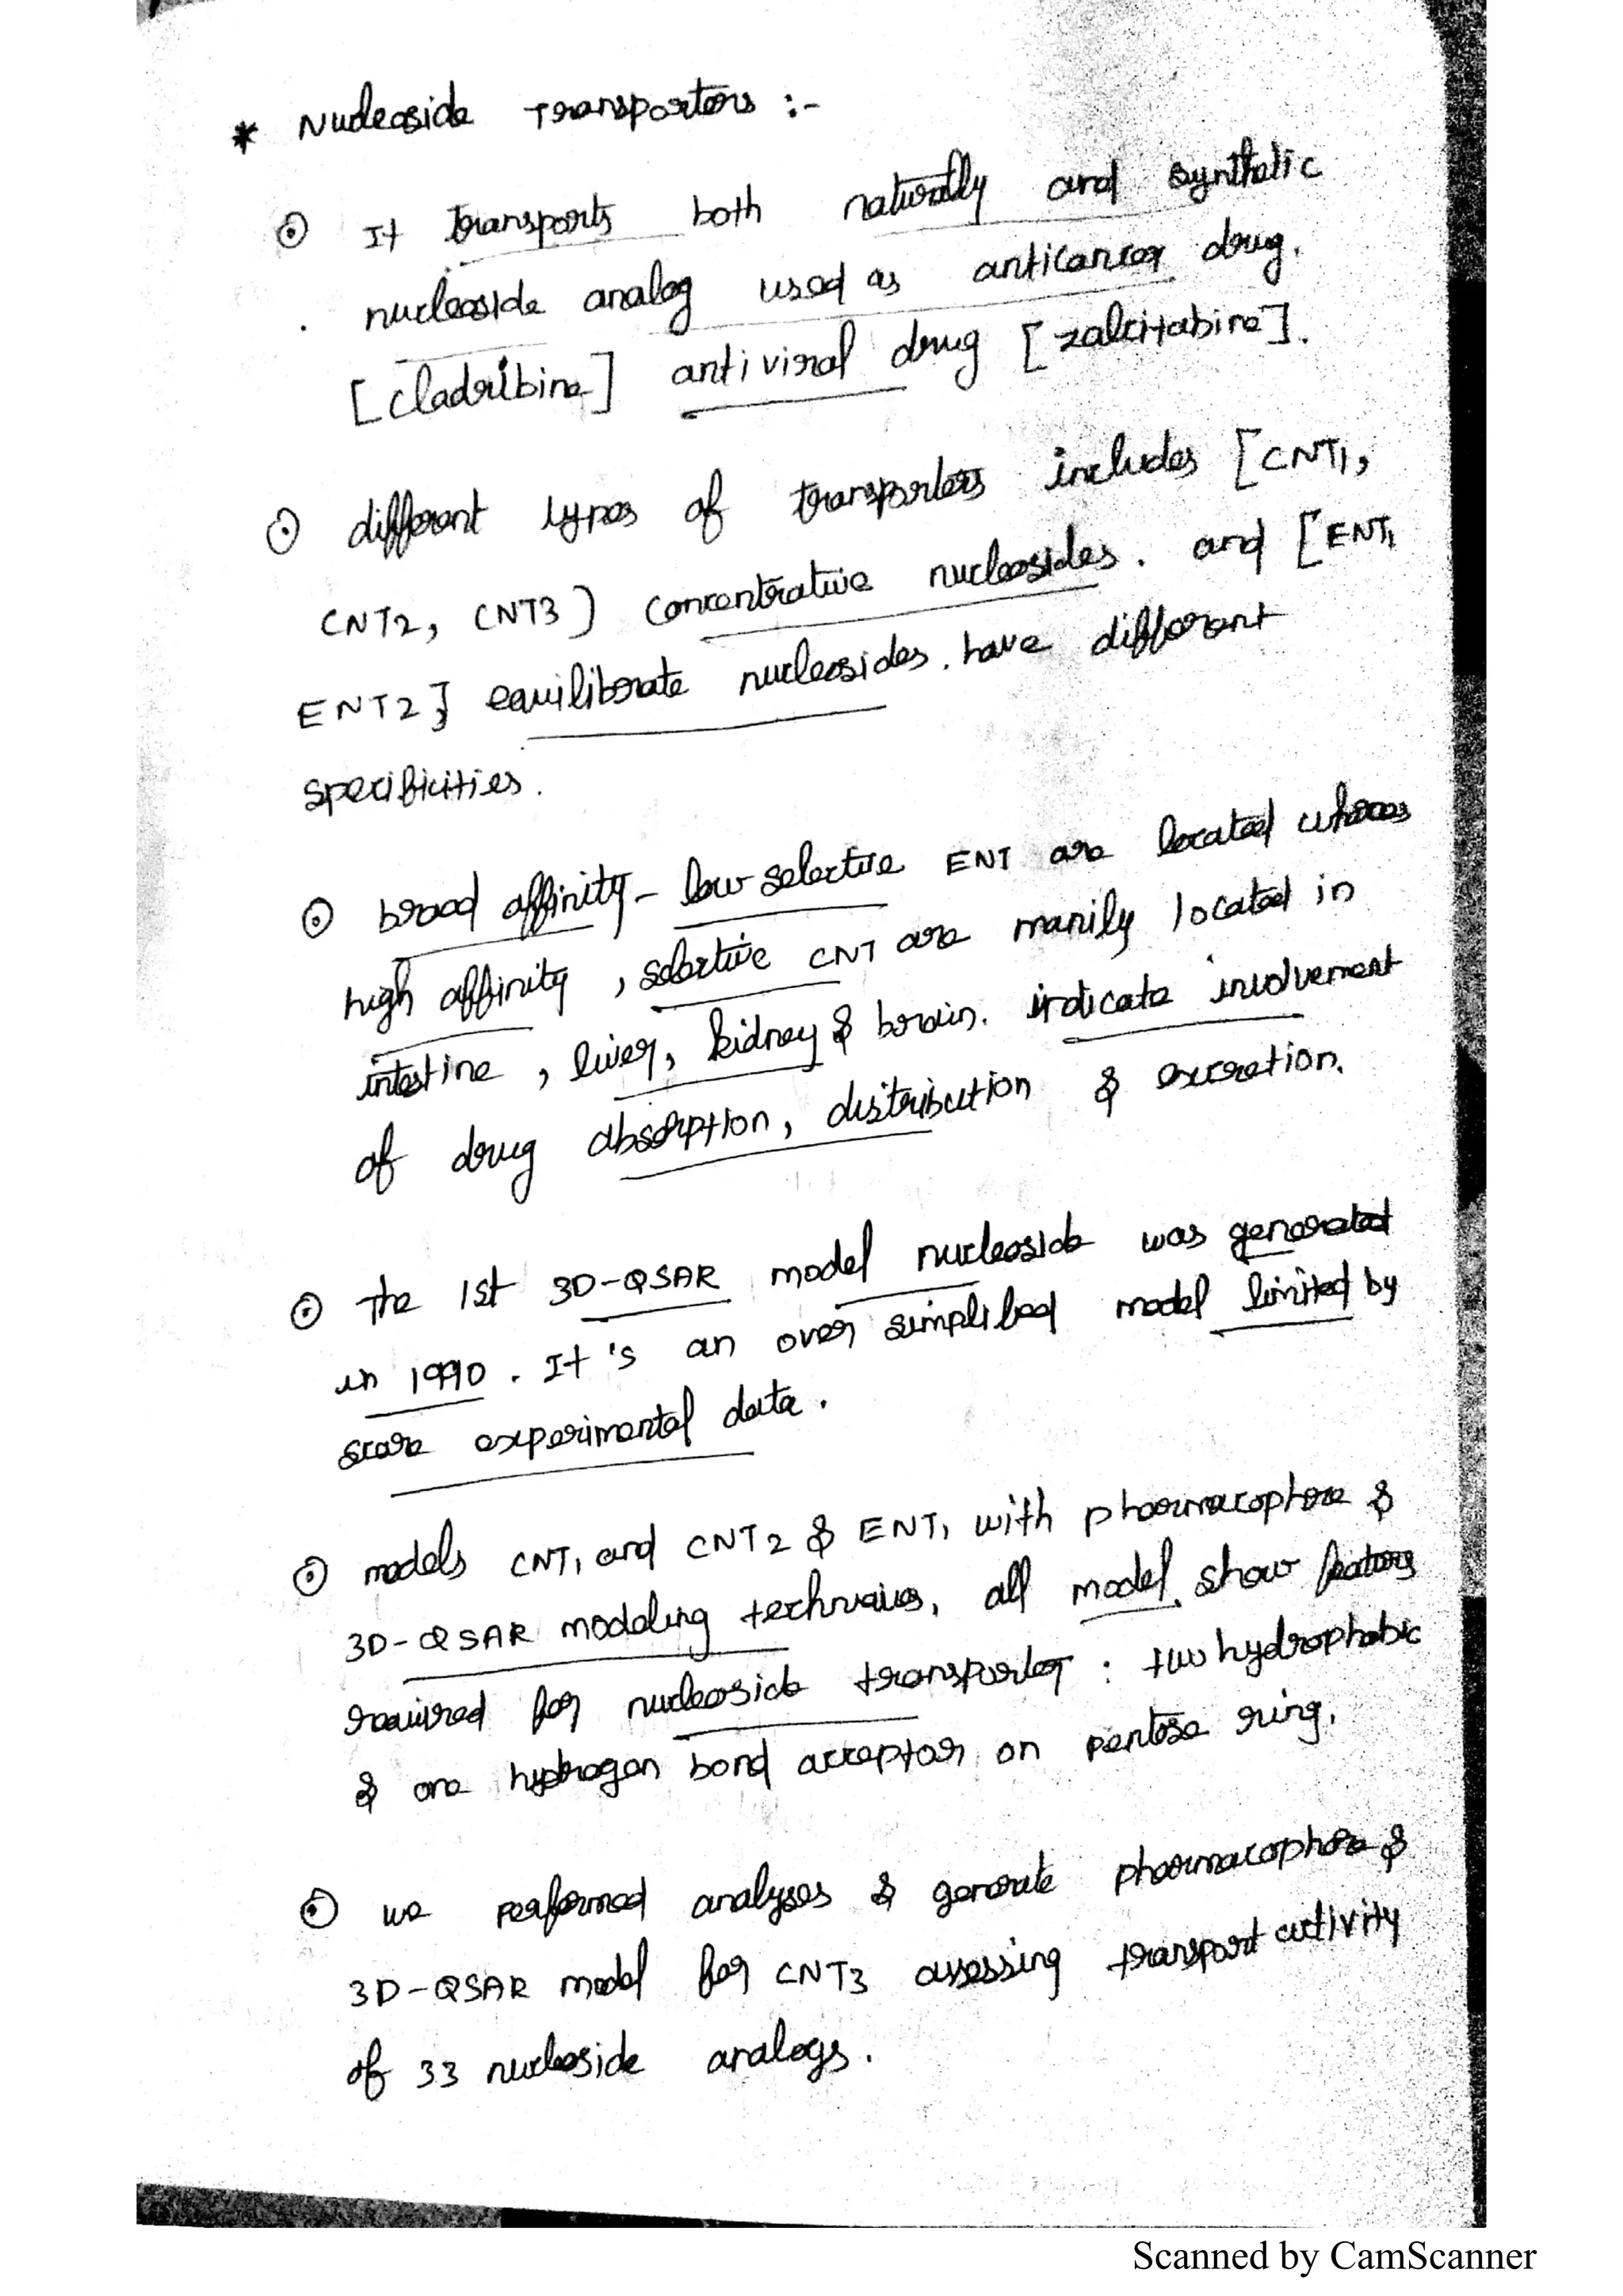 * Nucleoside Transporters :-
⊙ It transports both naturally and synthetic
nucleoside analog used as anticancer drug.
[cladribine] antiviral drug [zalcitabine].
⊙ different types of transporters includes [CNT1,
CNT2, CNT3) concentrative nucleosides. and [ENT1
ENT2] equilibrate nucleosides. have different
specificities.
⊙ broad affinity - low selective ENT are located whereas
high affinity, selective CNT are manily located in
intestine, liver, kidney & brain. indicate involvement
of drug absorption, distribution & excretion.
⊙ The 1st 3D-QSAR model nucleoside was generated
in 1990. It's an over simplified model limited by
scare experimental data.
⊙ models CNT1 and CNT2 & ENT1 with pharmacophore &
3D-QSAR modeling techniques, all model show features
required for nucleoside transporter : two hydrophobic
& one hydrogen bond acceptor on pentose ring.
⊙ we performed analyses & generate pharmacophore &
3D-QSAR model for CNT3 assessing transport activity
of 33 nucleoside analogs.
Scanned by CamScanner